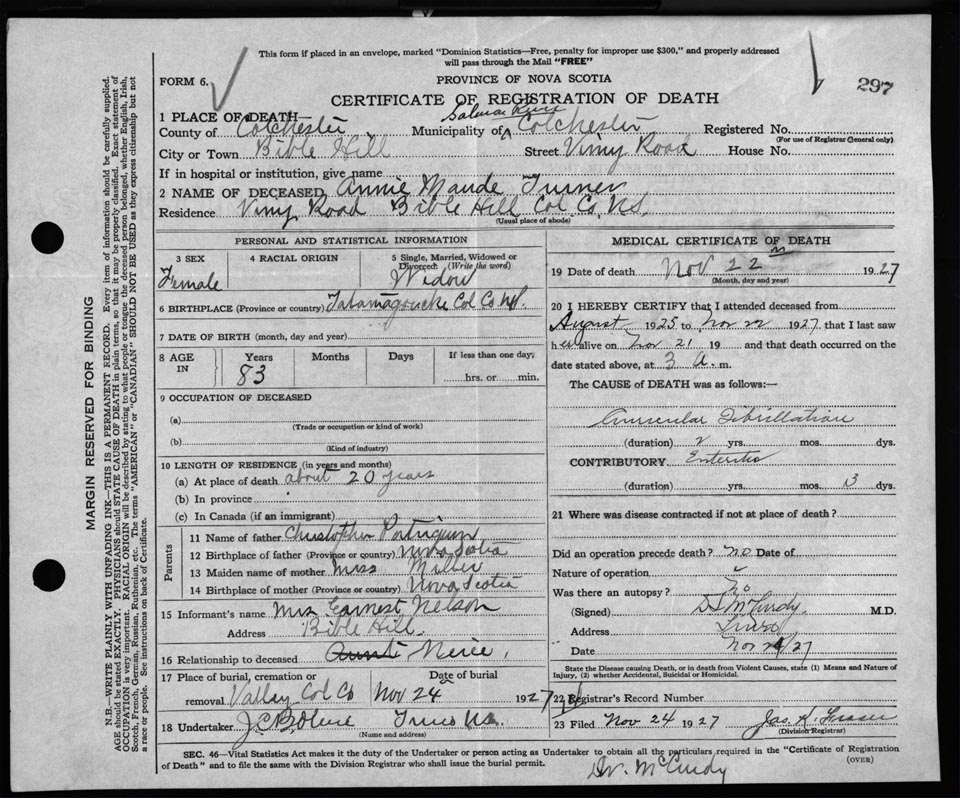 This form if placed in an envelope, marked "Dominion Statistics—Free, penalty for improper use $300," and properly addressed
will pass through the Mail "FREE"
FORM 6.
PROVINCE OF NOVA SCOTIA
297
CERTIFICATE OF REGISTRATION OF DEATH
1 PLACE OF DEATH—
Salmon River
County of Colchester Municipality of Colchester Registered No.
(For use of Registrar General only)
City or Town Bible Hill Street Vimy Road House No.
If in hospital or institution, give name
2 NAME OF DECEASED Annie Maude Turner
Residence Vimy Road Bible Hill Col. Co, N.S.
(Usual place of abode)
PERSONAL AND STATISTICAL INFORMATION
3 SEX 4 RACIAL ORIGIN 5 Single, Married, Widowed or
Divorced (Write the word)
Female Widow
6 BIRTHPLACE (Province or country) Tatamagouche Col Co NS.
7 DATE OF BIRTH (month, day and year)
8 AGE IN Years Months Days If less than one day,
83 hrs. or min.
9 OCCUPATION OF DECEASED
(a)
(Trade or occupation or kind of work)
(b)
(Kind of industry)
10 LENGTH OF RESIDENCE (in years and months)
(a) At place of death about 20 years
(b) In province
(c) In Canada (if an immigrant)
Parents
11 Name of father Christopher
12 Birthplace of father (Province or country) Nova Scotia
13 Maiden name of mother Miss
14 Birthplace of mother (Province or country) Nova Scotia
15 Informant's name Mrs Earnest Nelson
Address Bible Hill.
16 Relationship to deceased Aunt Neice.
17 Place of burial, cremation or Date of burial
removal Valley Col Co Nov 24 1927
18 Undertaker Truro N.S.
(Name and address)
MEDICAL CERTIFICATE OF DEATH
19 Date of death Nov 22 1927
(Month, day and year)
20 I HEREBY CERTIFY that I attended deceased from
August 1925 to Nov 22 1927 that I last saw
her alive on Nov 21 19 and that death occurred on the
date stated above, at 3 a. m.
The CAUSE of DEATH was as follows:—
Auricular Fibrillation
(duration) 2 yrs. mos. dys.
CONTRIBUTORY Enteritis
(duration) yrs. mos. 13 dys.
21 Where was disease contracted if not at place of death?
Did an operation precede death? no Date of
Nature of operation
Was there an autopsy? No
(Signed) McCurdy M.D.
Address Truro
Date Nov /27
State the Disease causing Death, or in death from Violent Causes, state (1) Means and Nature of
Injury, (2) whether Accidental, Suicidal or Homicidal.
22 Registrar's Record Number
23 Filed Nov 24 1927 Jas. A. Fraser
(Division Registrar)
SEC. 46—Vital Statistics Act makes it the duty of the Undertaker or person acting as Undertaker to obtain all the particulars required in the "Certificate of Registration
of Death" and to file the same with the Division Registrar who shall issue the burial permit.
(OVER)
Dr. McCurdy
MARGIN RESERVED FOR BINDING
N.B.—WRITE PLAINLY WITH UNFADING INK—THIS IS A PERMANENT RECORD. Every item of information should be carefully supplied.
AGE should be stated EXACTLY. PHYSICIANS should STATE CAUSE OF DEATH in plain terms, so that it may be properly classified. Exact statement of
OCCUPATION is very important. RACIAL ORIGIN will be described by stating to what people or tongue the deceased person belonged, whether English, Irish,
Scotch, French, German, Russian, Ruthenian, etc. The terms "AMERICAN" or "CANADIAN" SHOULD NOT BE USED as they express citizenship but not
a race or people. See instructions on back of Certificate.